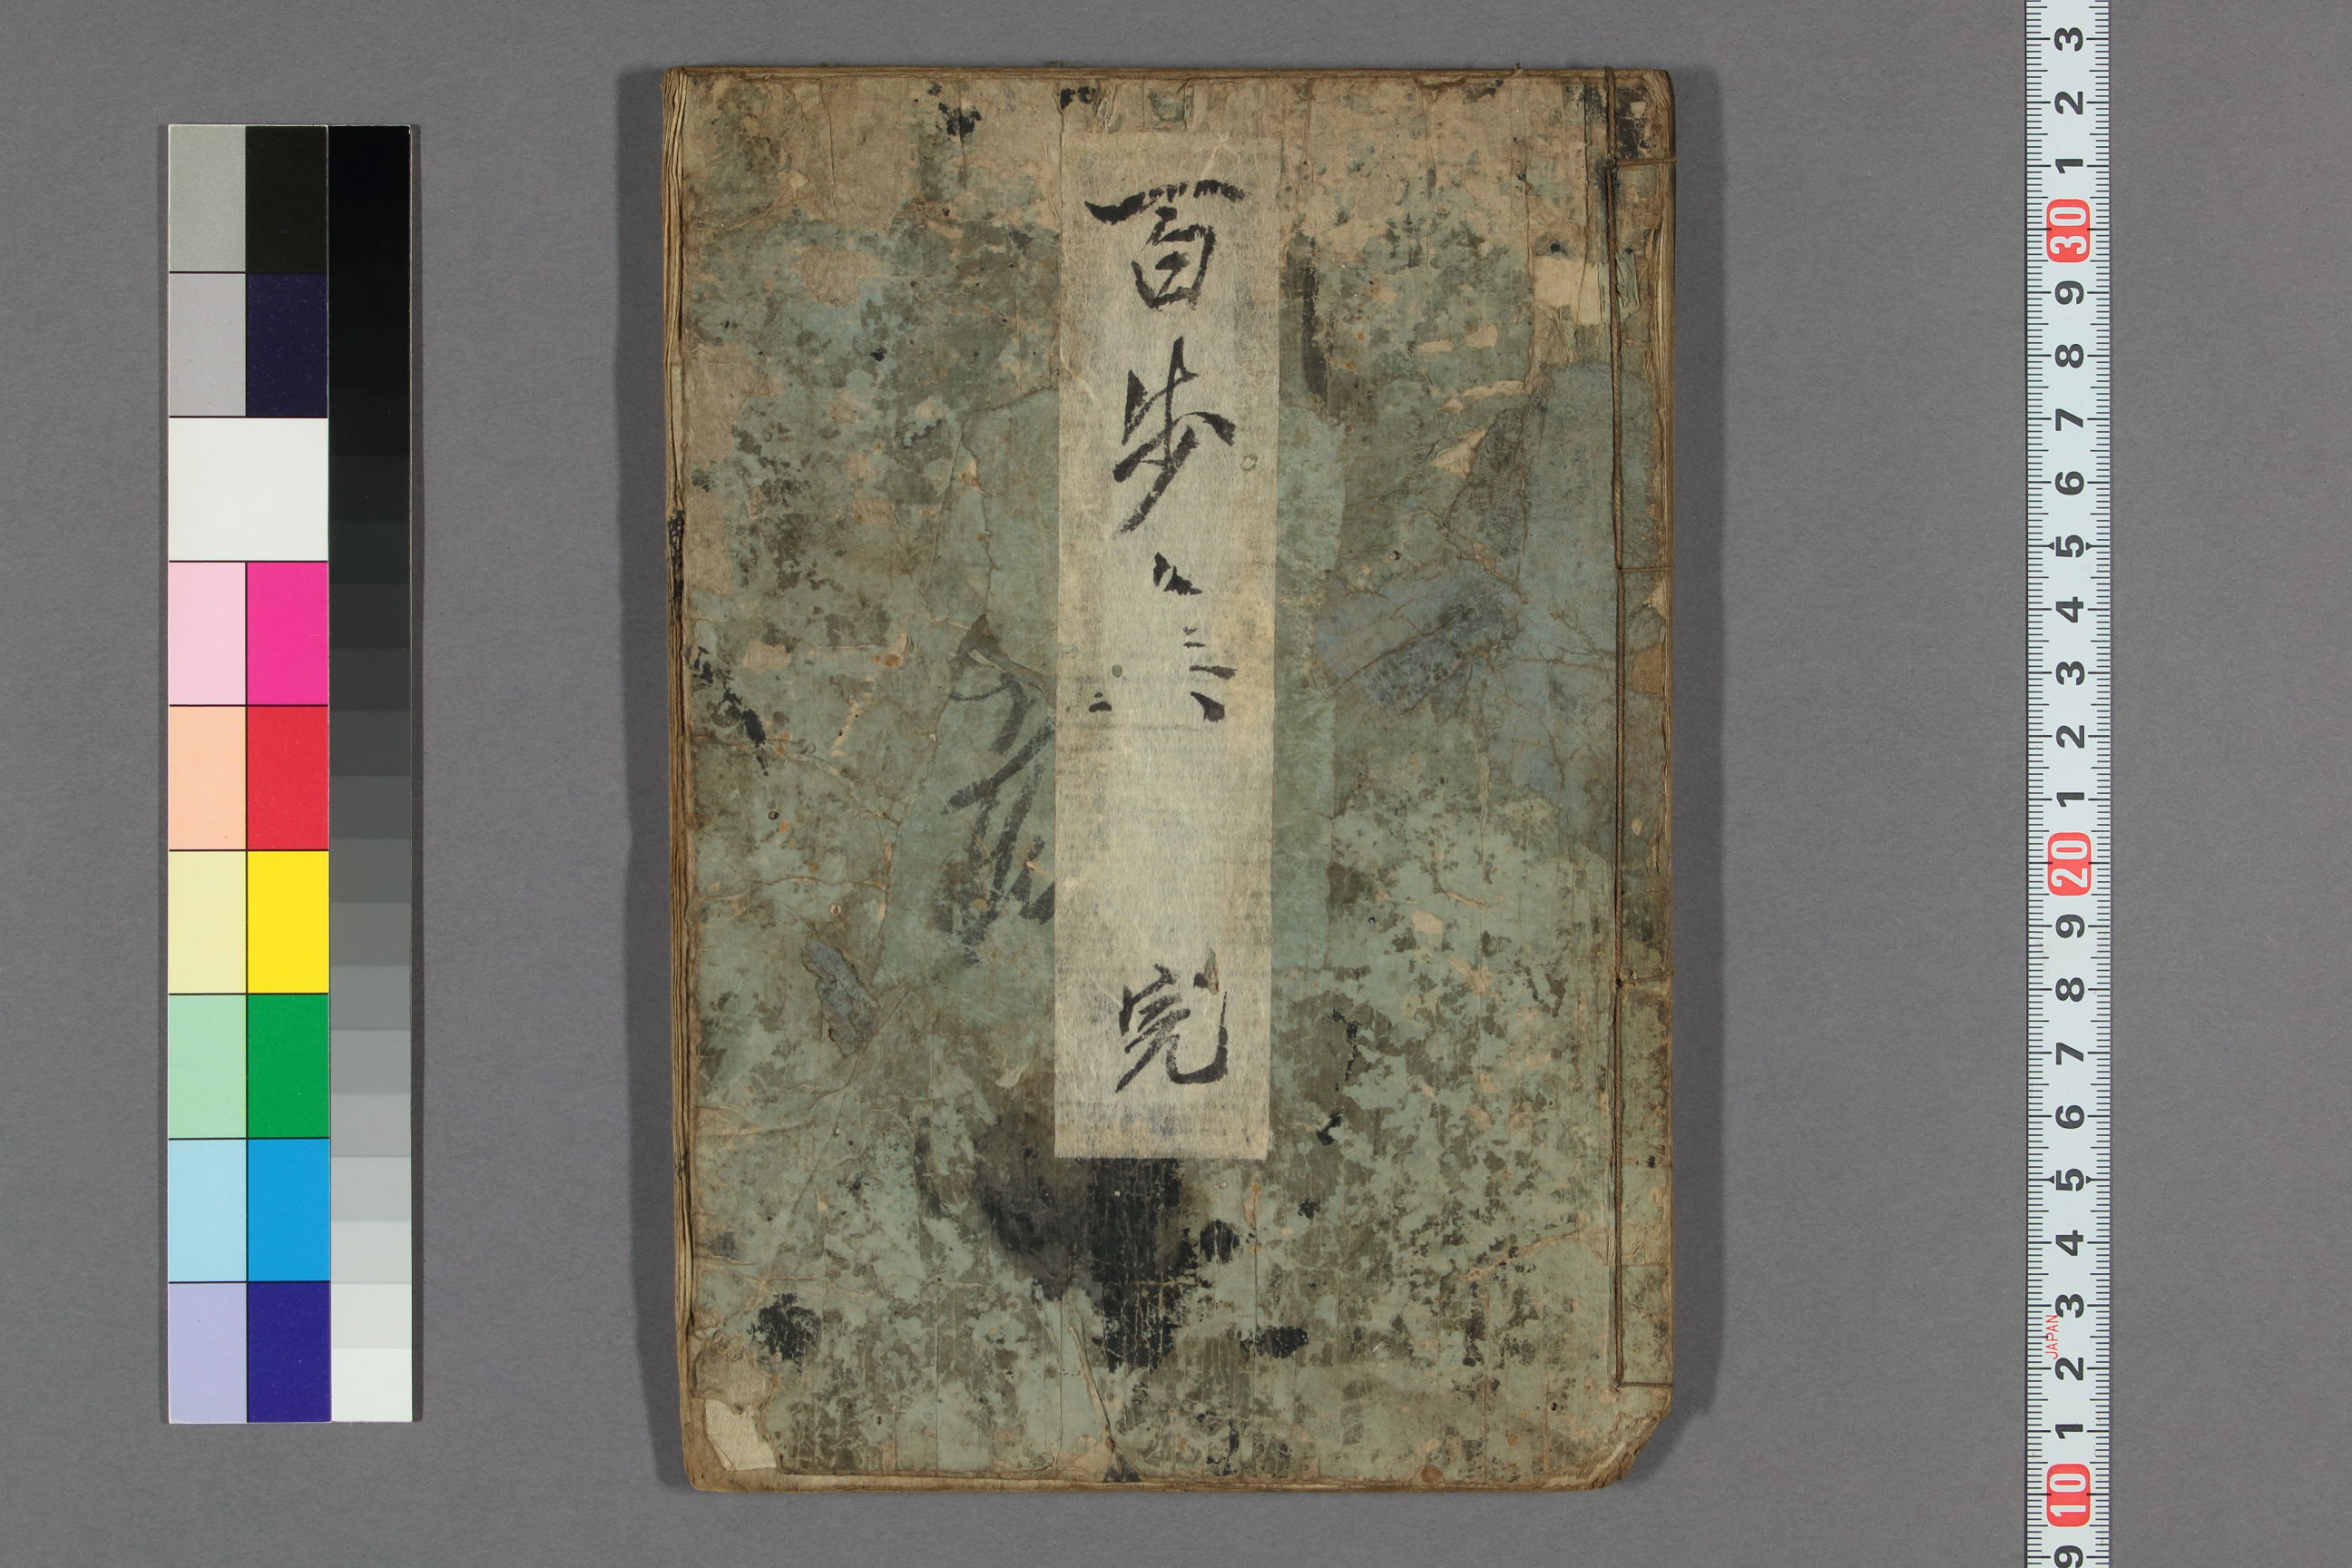 百歩
完
3
2
1
30
9
8
7
6
5
4
3
2
1
20
9
8
7
6
5
4
3
JAPAN
2
1
10
9